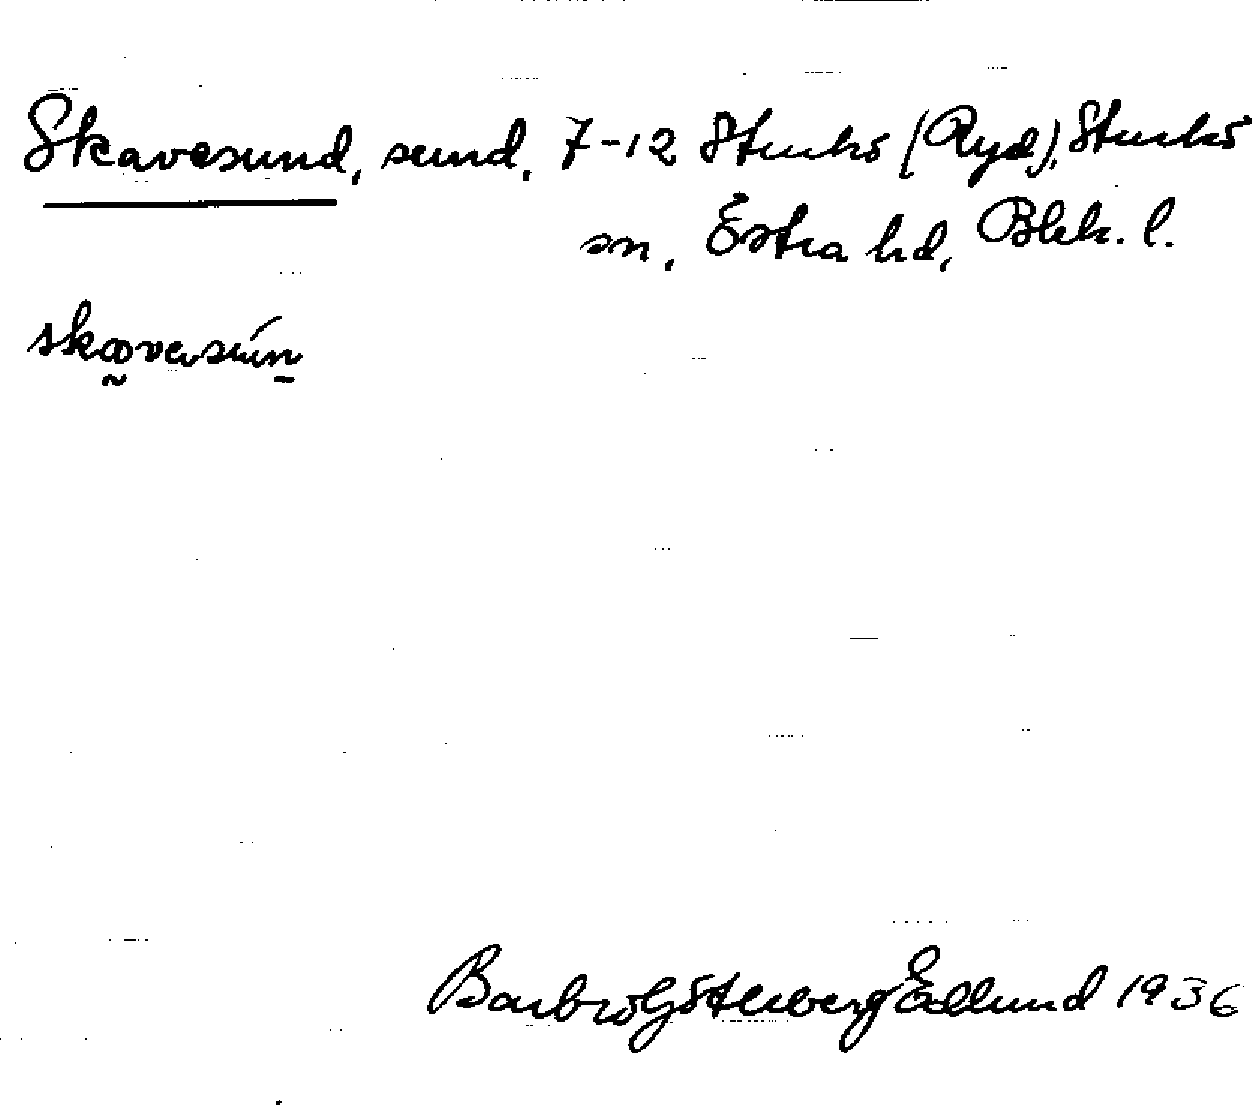 Skavesund, sund, 7-12 Sturkö (Ryd), Sturkö
sn, Östra hd, Blek. l.
Barbro Götlind Edlund 1936